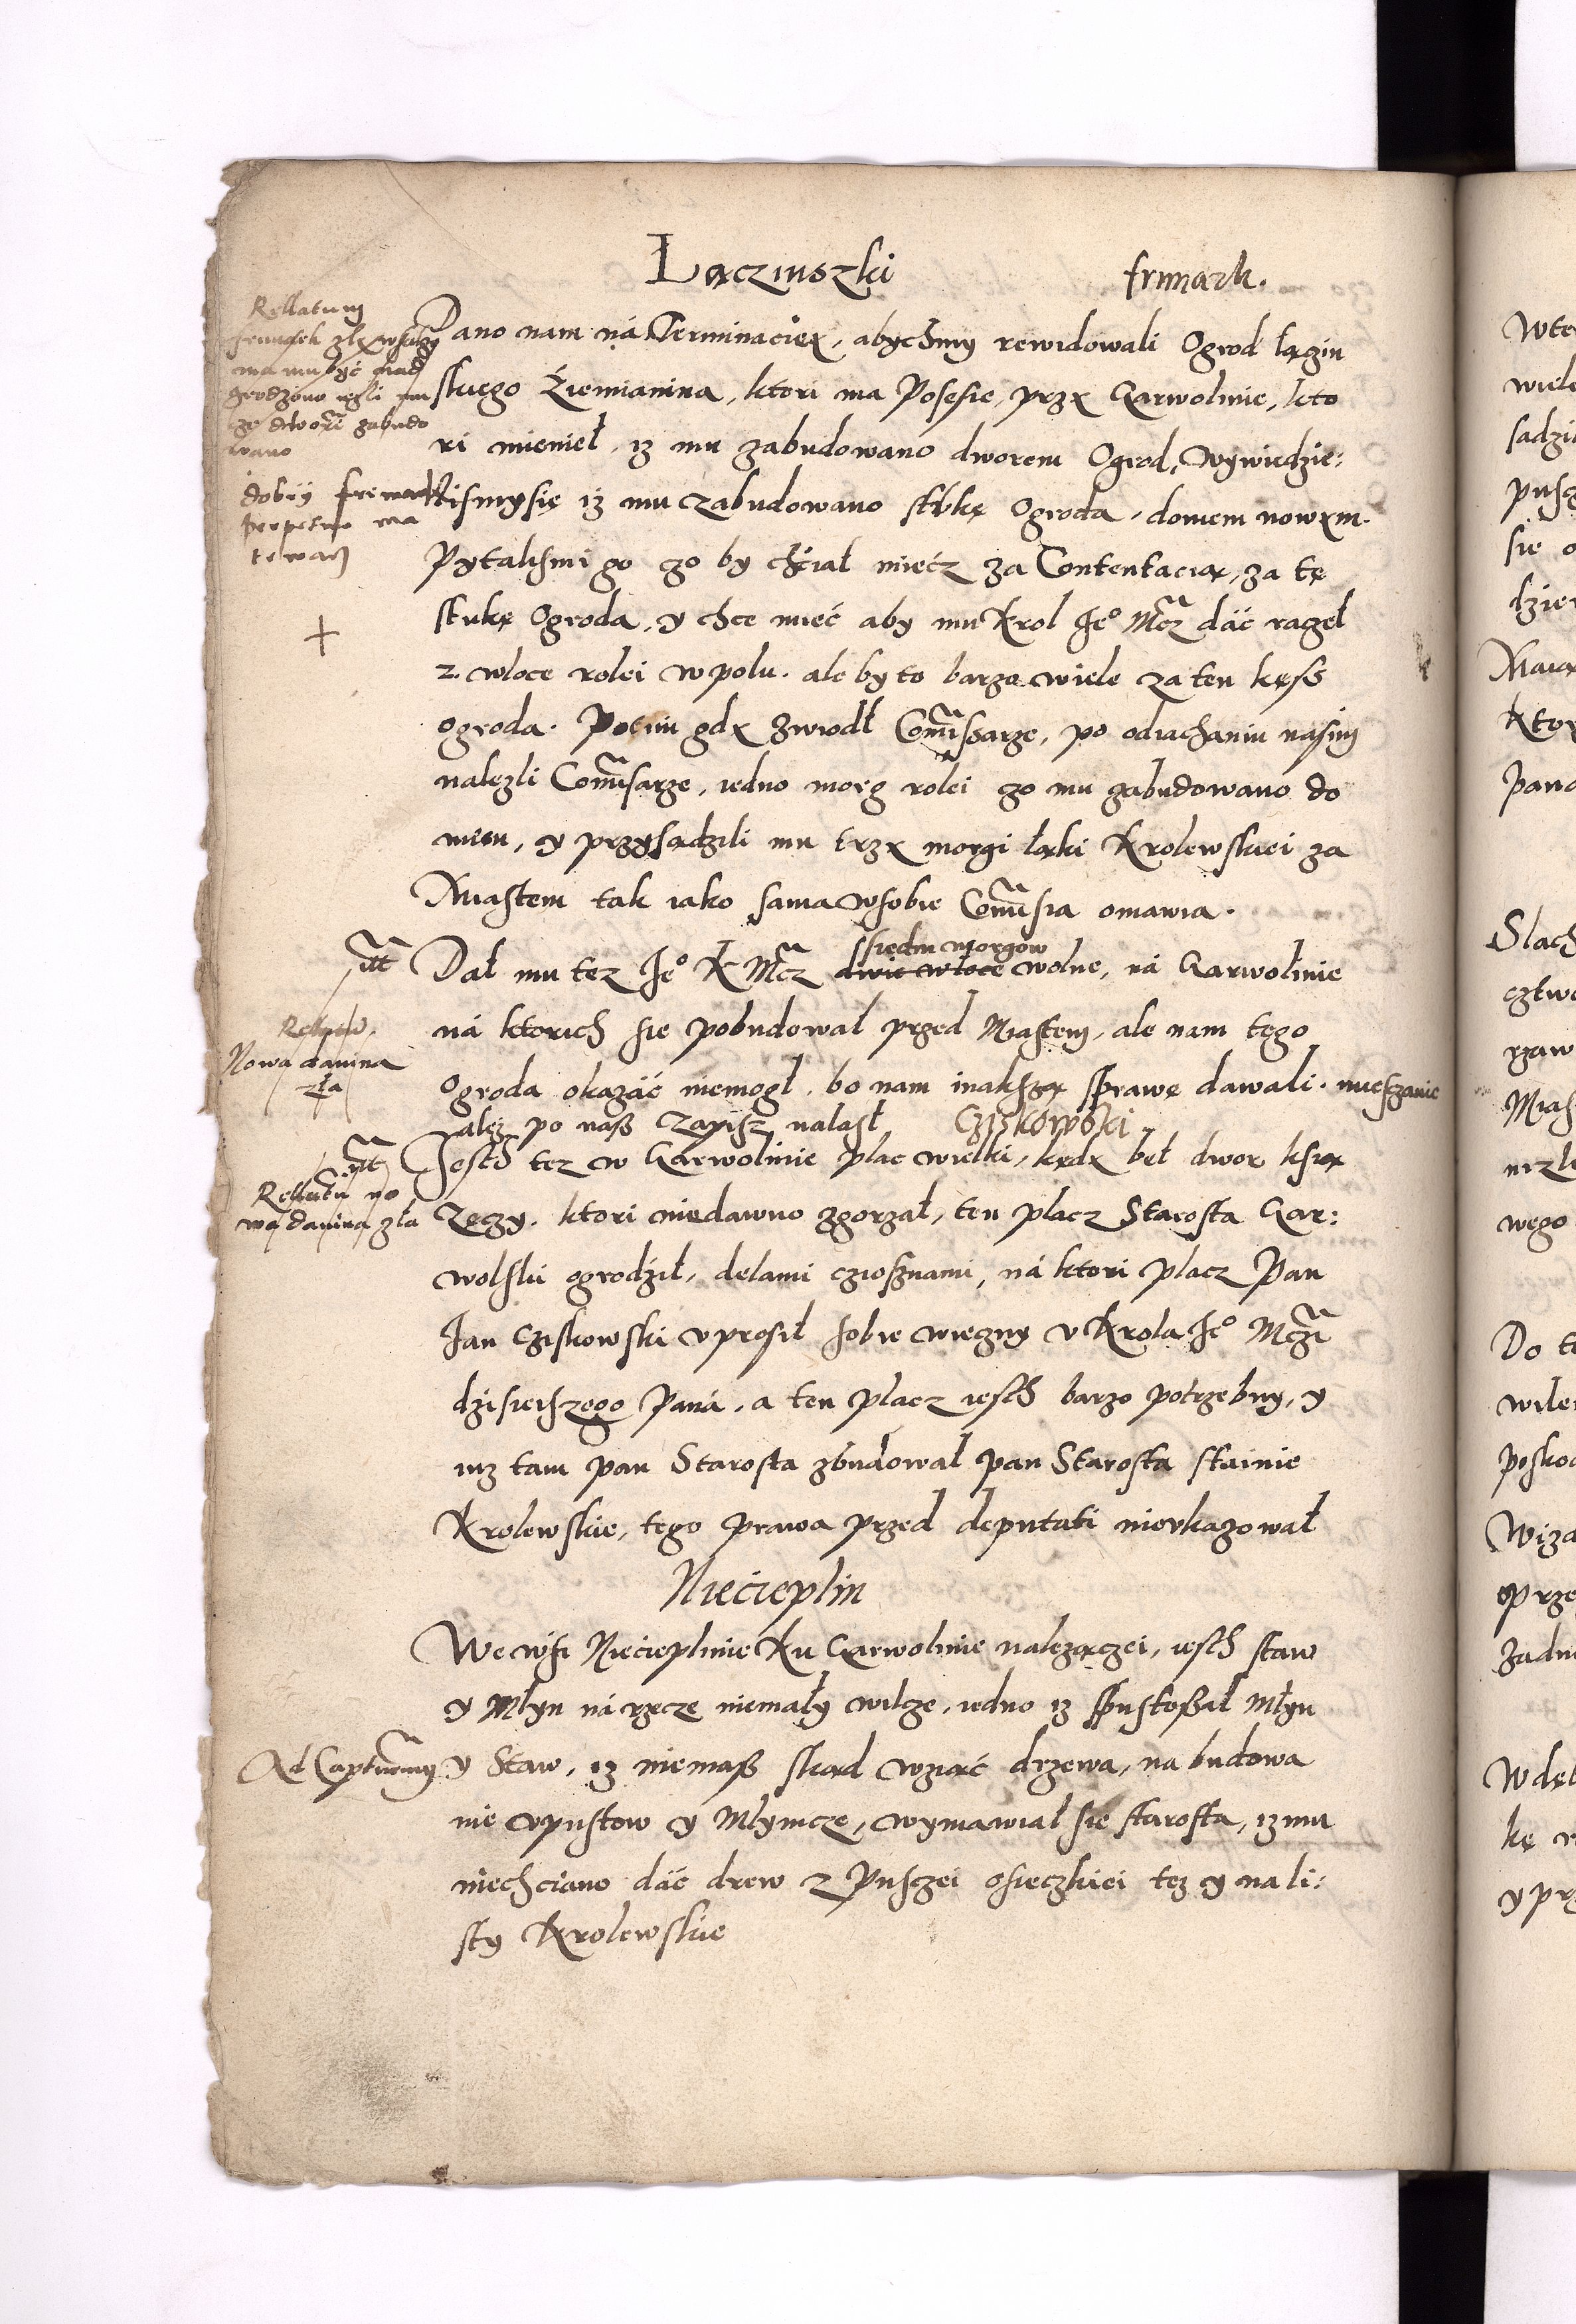 Lączinszki
frimark.
Rellatum
frimark zły wszakze
ma mu być nad
grodzono iesli mu
go dworē zabudo
wano
dobry frimark
perpetuo ma
trwacz
Dano nam ná Terminacieą, abychmy rewidowali Ogrod łączin
skiego Źiemianina, ktori ma Posesie, przy Garwolinie, kto
ri mienieł, iz mu zabudowano dworem Ogrod, wywiedzie:
lismysię iz mu zabudowano stukę Ogroda, domem nowym.
Pytalismi go czo by chciał miećz za Contentacią, za tę
stukę Ogroda, y chce mieć aby mu Krol Jeº Mcz dáć raczeł
2. włoce rolei w polu. ale by to barzo wiele za ten kęss
ogroda. Potim gdy zwiodł Comissarze, po odiachaniu naszim
nalezli Comisarze, iedno morg rolei czo mu zabudowano do
mem, y przysądzili mu trzy morgi łąki Krolewskiei za
Miastem tak iako sama w sobie Comisia omawia.
sūt
siedm morgow
Dał mu tez Jeº K Mcz dwie włoce wolne, ná Garwolinie
ná ktorich sie pobudował przed Miastem, ale nam tego
Nowa danina
zła
Ogroda okazáć niemogł, bo nam inakszą sprawę dawali. mieszczanie
alez po nass zapisz nalasł
Cziskowski
Jesth tez w Garwolinie plac wielki, kędy beł dwor ksią
Rellatū no
wa danina zła
zęczy, ktori niedawno zgorzał, ten placz Starosta Gar:
wolski ogrodził, delami cziosznami, ná ktori placz Pan
Jan Cziskowski uprosił sobie wieczny v Krola Jeº Mczi
dzisieiszego Paná, a ten placz iesth barzo potrzebny, y
iuz tam pan Starosta zbudował pan Starosta stainie
Krolewskie, tego prawa przed deputati nieukazował
Niecieplin
We wsi Niecieplinie Ku Garwolinie nalezączei, iesth staw
y Młyn ná rzecze niemały wilcze, iedno iz spustossał Młyn
Ad Capturam
y Staw, iz niemass skąd wziąć drzewa, na budowa
nie upustow y Młynicze, wymawiał sie starosta, iz mu
niechciano dáć drew z Pusczei osieczkiei tez y na li:
sty Krolewskie